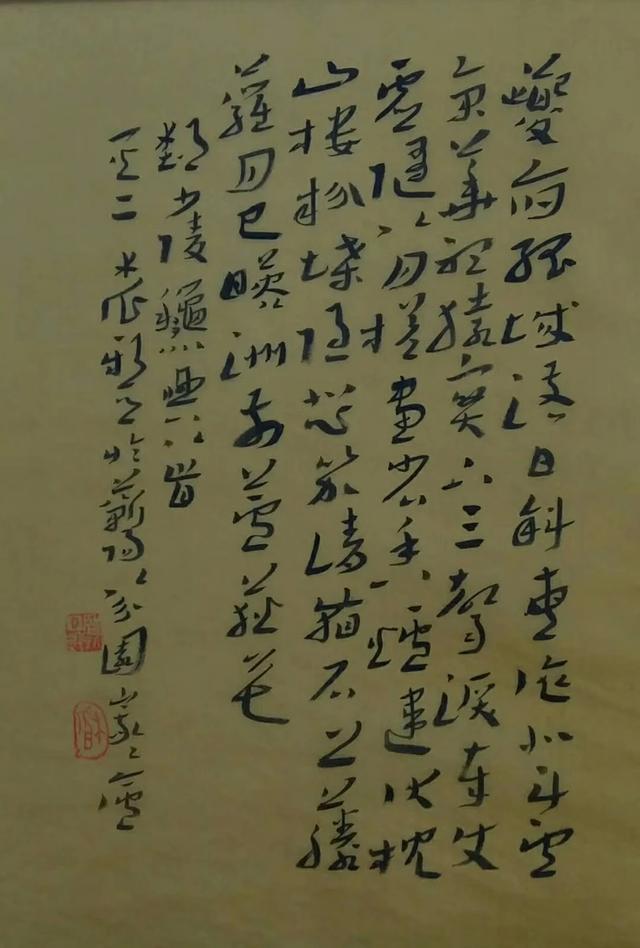 夔府孤城落日斜每依北斗望
京華聽猿實下三聲淚奉使
虛隨八月槎畫省香爐違伏枕
山樓粉堞隱悲笳請看石上藤
蘿月已映洲前蘆荻花
少陵龝興八首
其二 於蘄陽 園 廬